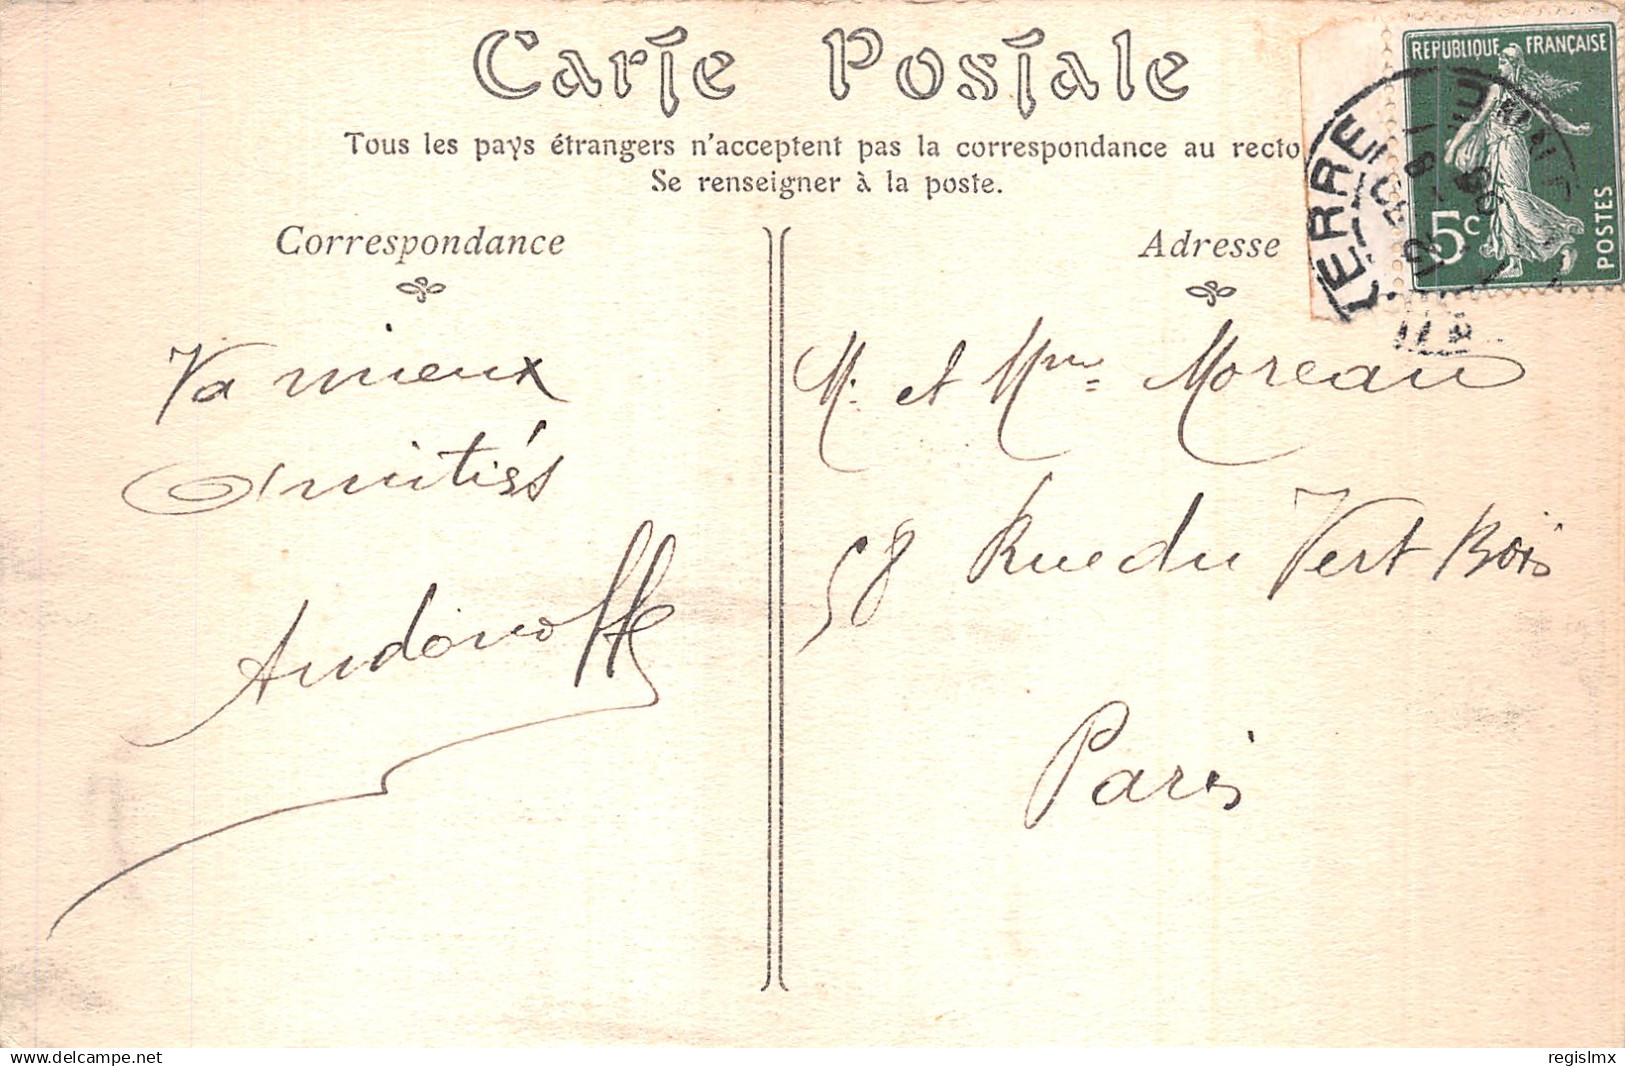 Carte Postale
Tous les pays étrangers n'acceptent pas la correspondance au recto
Se renseigner à la poste.
Correspondance
Va mieux
Amitiés
Andonoff
Adresse
M. et Mme Moreau
58 Rue du Vert Bois
Paris
REPUBLIQUE FRANÇAISE
5c
POSTES
delcampe.net
regislmx